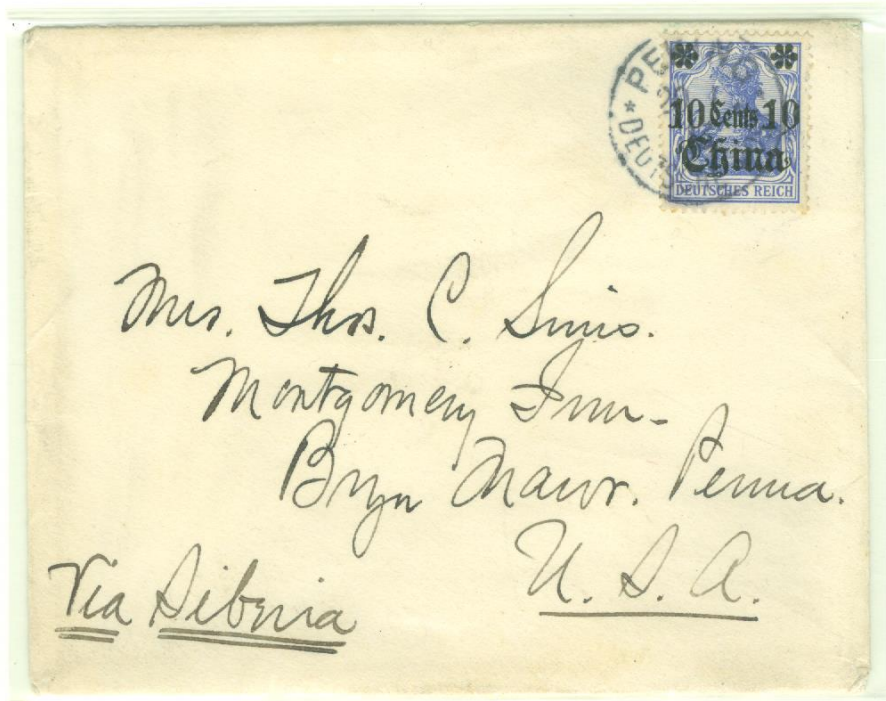 PEKING
DEUTSCHE
10 Cents 10
China
DEUTSCHES REICH
Mrs. Thos. C. Sims.
Montgomery Inn-
Bryn Mawr. Penna.
U. S. A.
Via Siberia